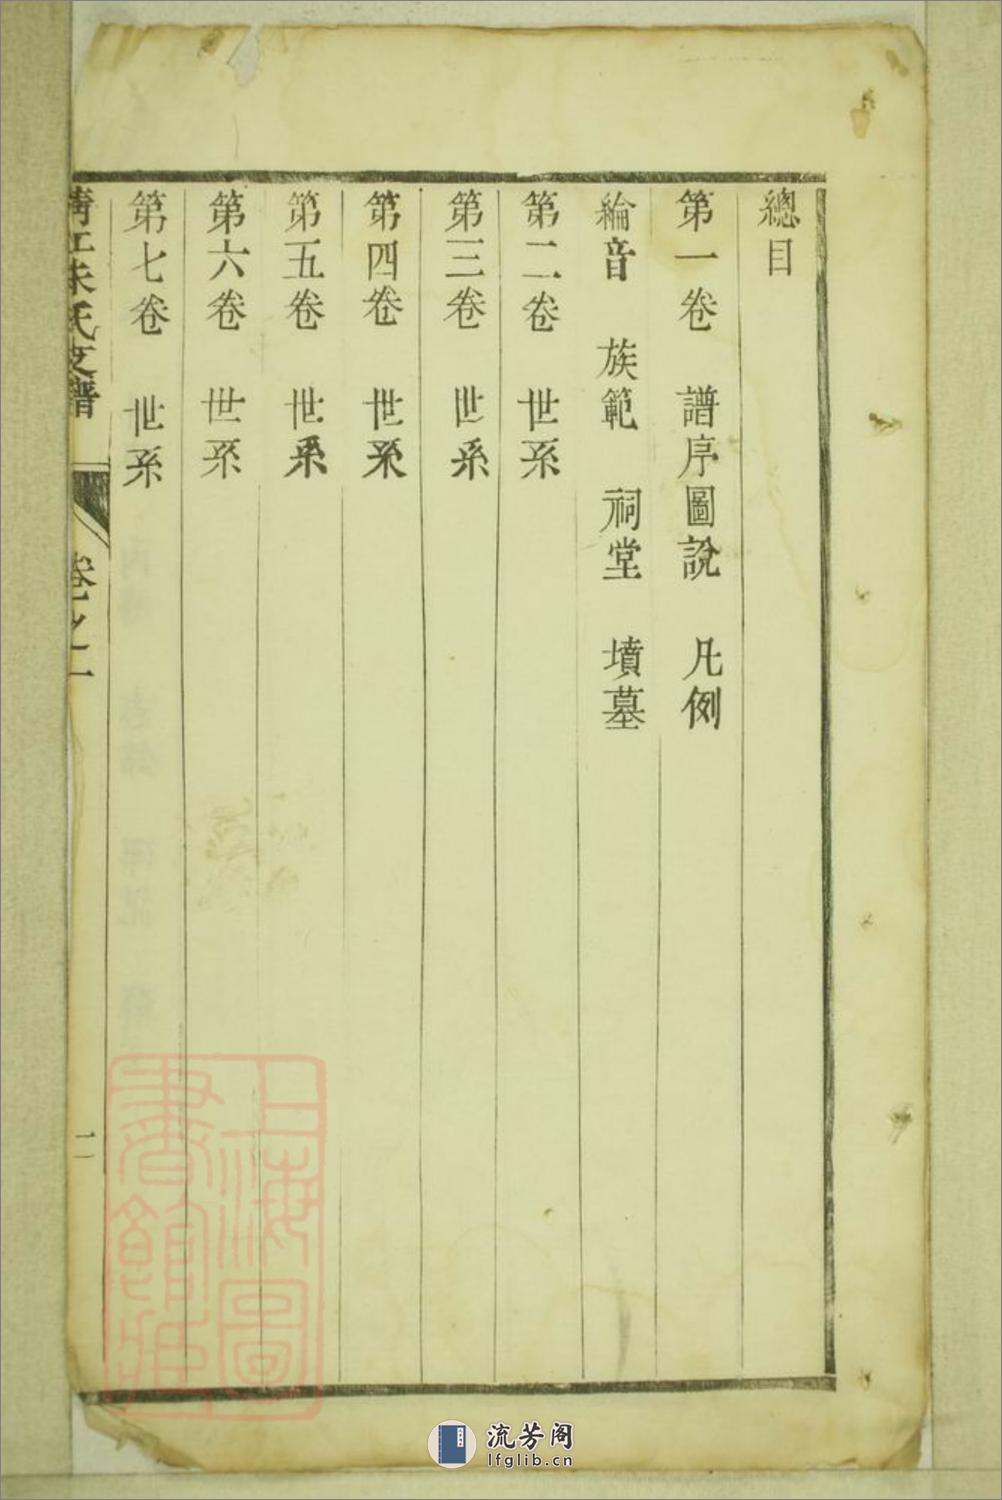 總目
第一卷 譜序圖說 凡例
綸音 族範 祠堂 墳墓
第二卷 世系
第三卷 世系
第四卷 世系
第五卷 世系
第六卷 世系
第七卷 世系
朱氏支譜
卷之
二
上海圖書館藏
流芳阁
lfglib.cn